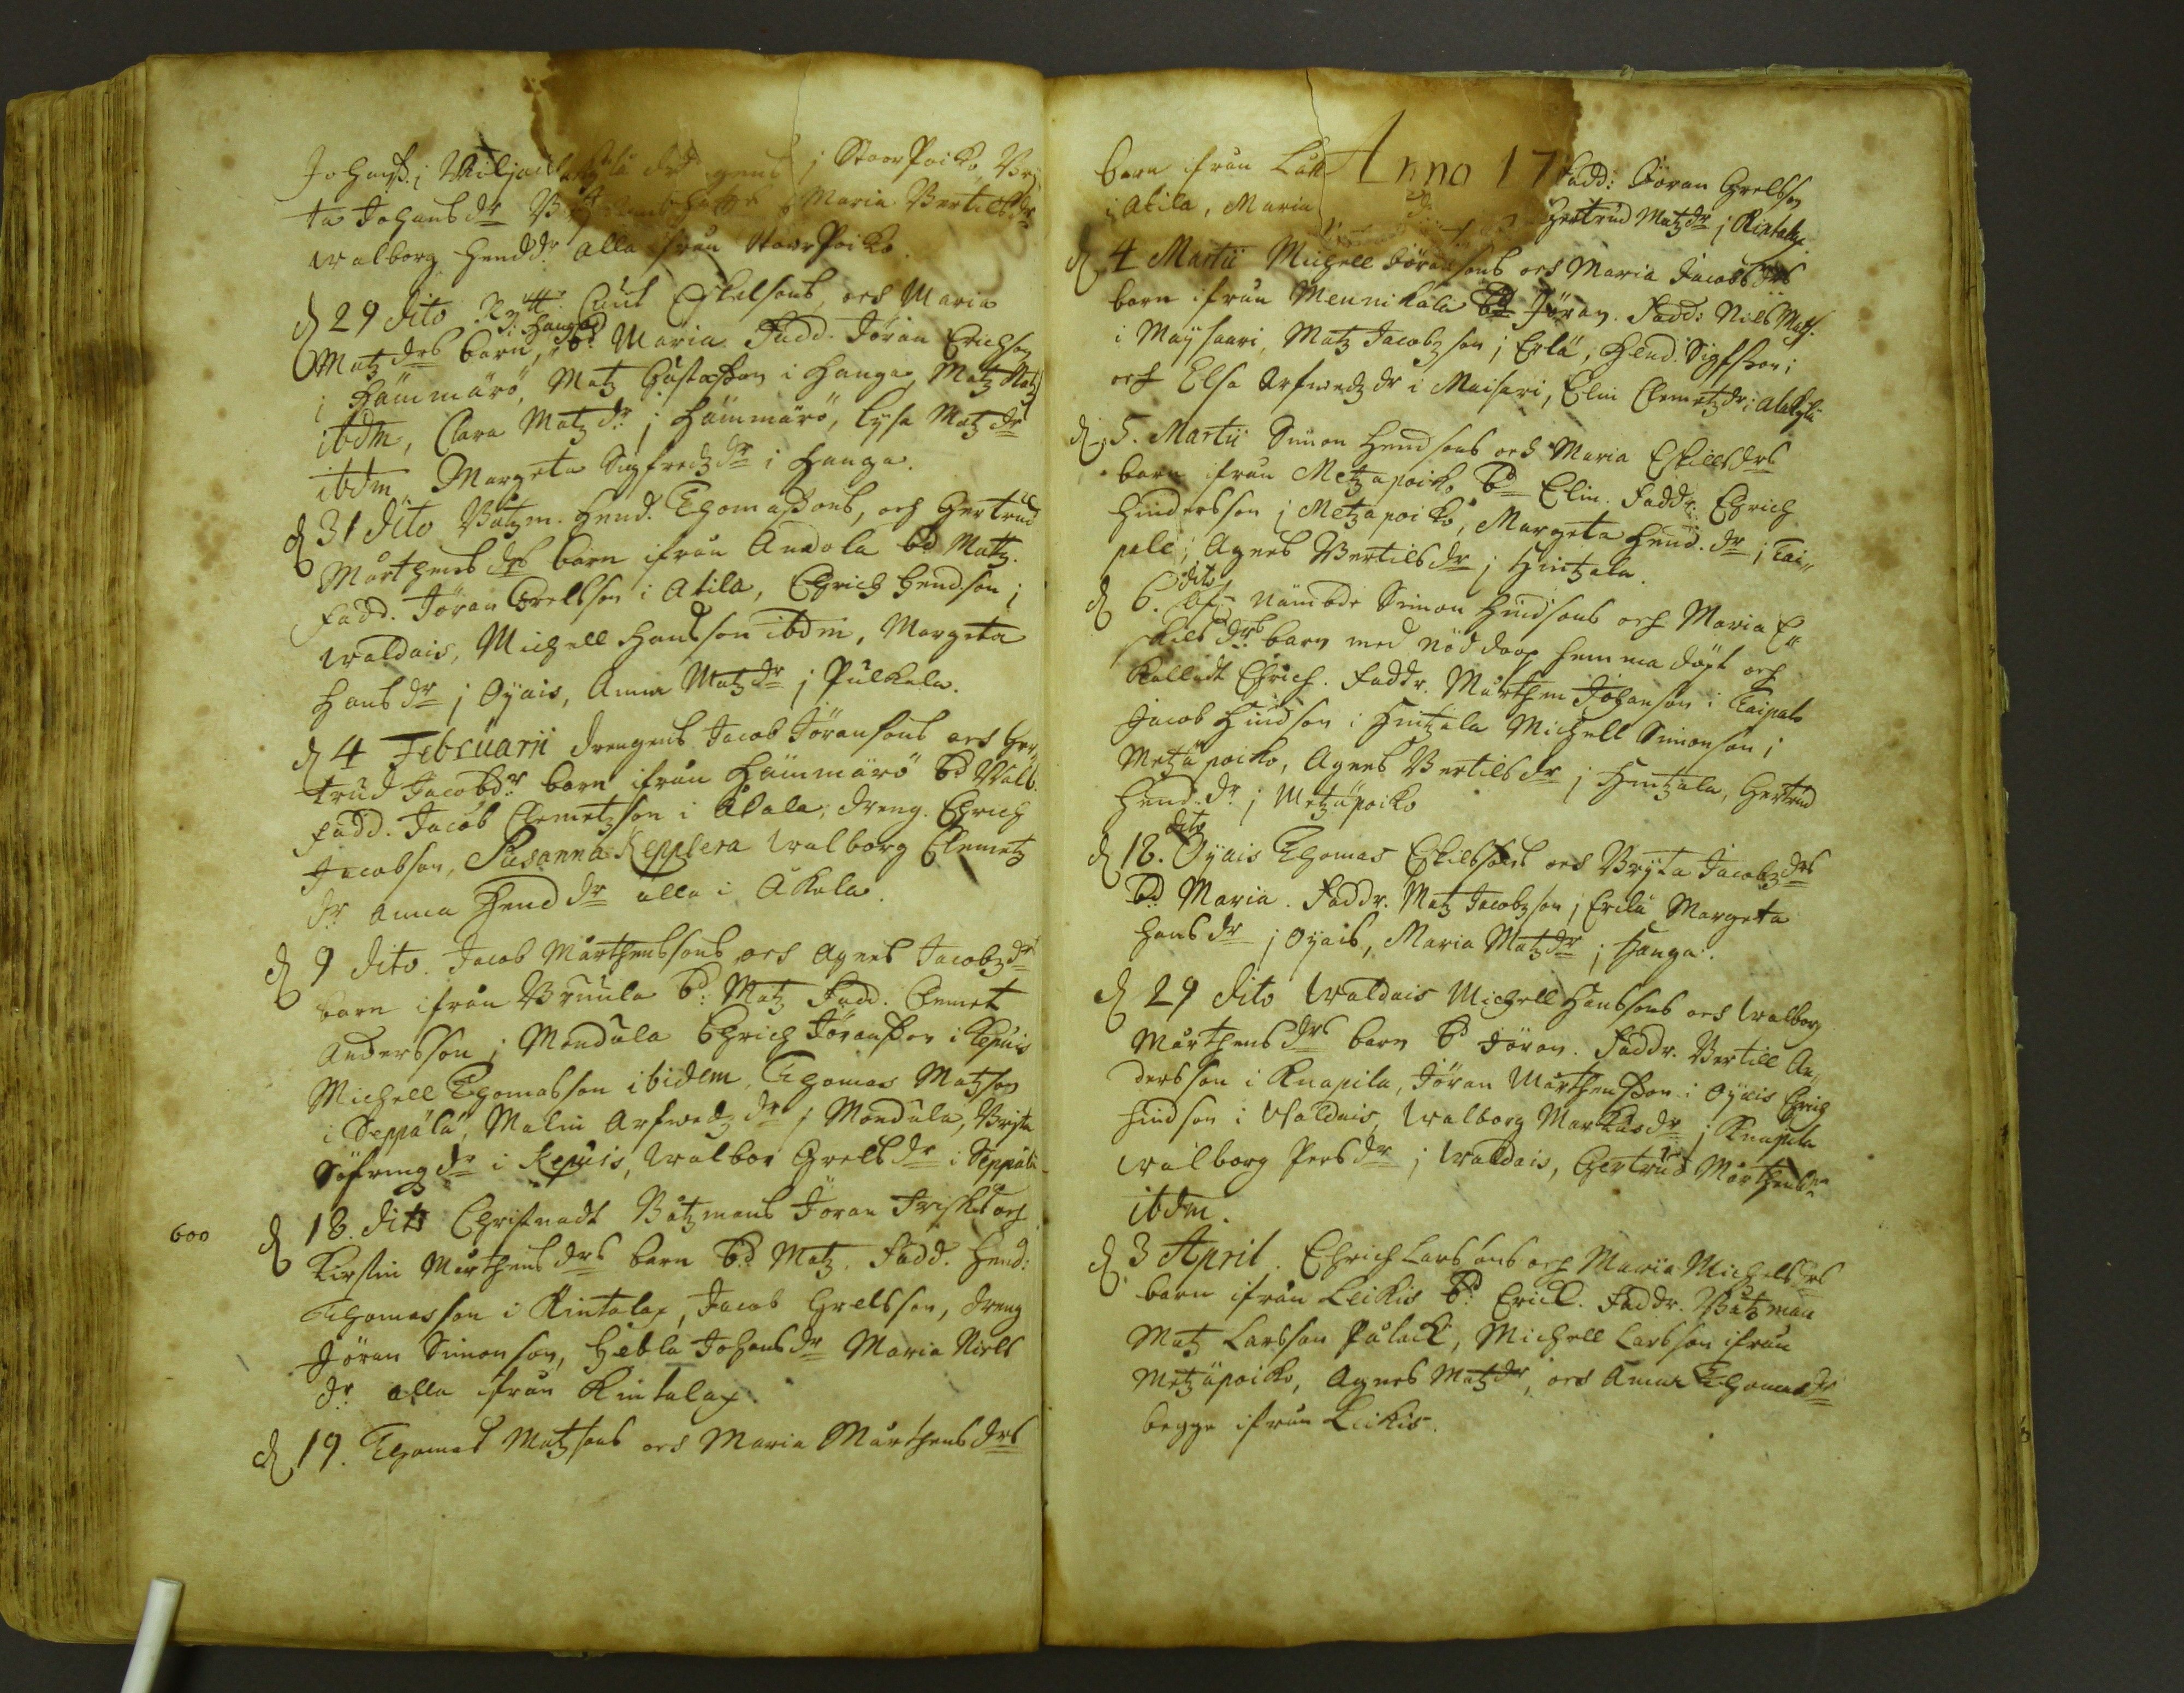 Johanß. i Viljais i StoorPoiko, Bri
ta Johansdr Maria Bertilsdr
walborg Hendr alla från StoorPoiko.
d 29 dito Rytt. Knut Eskelsons, och Maria
Matzdrs barn, i Hanga bd Maria Fadd. Jöran Erichson
i Hämmärö, Matz Gustafson i Hanga, Matz Matz
ibdm, Clara Matzdr i Hämmärö, Lysa Matzdr
ibdm Margeta Sigfredzdr i Hanga.
d 31 dito Båtzm. Hend. Thomaßons, och Gertrud
Mårthensdrs barn ifrån Andola bd Matz.
Fadd. Jöran Grelsson i Akila, Chrich Hendson i
waldais, Michell Hansson ibdm, Margeta
Hansdr i Oyais, Anna Matzdr i Pulkala.
d 4 Februarii drengens Jacob Jöransons och Ger
trud Jacobdr barn ifrån Hämmärö bd Walb.
Fadd. Jacob Clemetzson i Akala, dreng. Chrich
Jacobson, Susanna Kepplera walborg Clemetz
dr Anna Henddr alla i Akala.
d 9 dito. Jacob Mårthenssons och Agnes Jacobzdr
barn ifrån Bruula bd: Matz Fadd. Clemet
Andersson i Mondula Chrich Jöranßon i Kepuis
Michell Thomasson ibidem, Thomas Matzson
i Seppälä, Malin Arfwedzdr i Mondula, Brita
Söfringdr i Kepuis, walbor Grelsdr i Seppälä
600
d 18. dito Christnadt Båtzmans Jöran Friskes och
Kirstin Mårthensdrs barn bd. Matz. Fadd. Hend:
Thomasson i Kintalax, Jacob Grelsson, dreng
Jöran Simonson, Hebla Johansdr Maria Niels
dr alla ifrån Kintalax.
d 19. Thomas Matzsons och Maria Mårthensdrs
Anno 17
barn ifrån Fadd: Jöran Grelsson
i Akila, Maria Gertrud Matzdr i Kintalax.
d 4 Martii Michell Jöransons och Maria Jacobsdrs
barn ifrån Mennikälä bd Jöran. Fadd: Nils Matz.
i Maysaari, Matz Jacobzson i Erlä, Hend. Sigfßon i
och Elsa Arfwedzdr i Maisari, Elin Clemetzdr i Alakylä
d. 5. Martii Simon Hendsons och Maria Eskillsdrs
barn ifrån Metzäpoiko bd Elin. Faddr. Chrich
Hindersson i Metzäpoiko, Margeta Hend. dr i Tai„
pale, Agnes Bertilsdr i Hintzala.
d 6. dito of. nämbde Simon Hindsons och Maria E„
skilsdrs barn med nöddoop hemma döpt och
kalladt Chrich. Faddr. Mårthen Johanson i Taipale
Jacob Hindson i Hintzala Michell Simonson i
Metzäpoiko, Agnes Bertilsdr i Hintzala, Gertrud
Hend. dr i Metzäpoiko
d 18. dito Oyais Thomas Eskilssons och Bryta Jacobzdrs
bd Maria. Faddr. Matz Jacobzson i Erilä Margeta
Hansdr i Oyais, Maria Matzdr i Hanga.
d 29 dito Waldais Michell Hanssons och walborg
Mårthensdrs barn bd Jöran. Faddr. Bertill An„
dersson i Knapila, Jöran Mårthensßon i Oyais Chrich
Hindson i Waldais, Walborg Markusdr i Knapila
walborg Persdr i Waldais, Gertrud Mårthensdr
ibdm.
d. 3 April. Chrich Larsons och Maria Michelsdrs
barn ifrån Leikis bd: Erick. Faddr. Båtzman
Matz Larsson Pålack, Michell Larsson ifrån
Metzäpoiko, Agnes Matzdr, och Anna Thomasdr
begge ifrån Leikis.